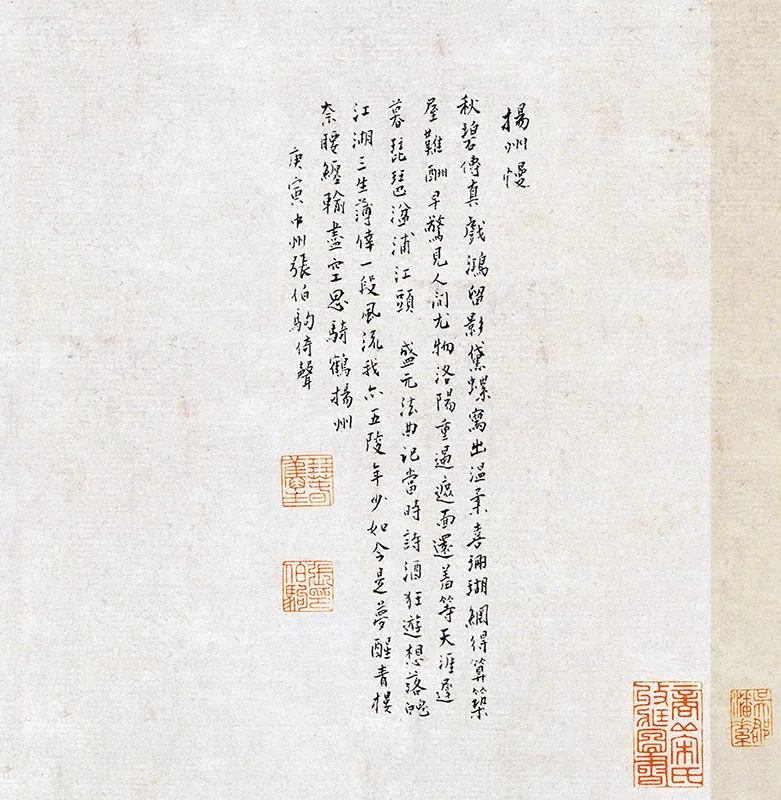 揚州慢
秋碧傳真戲鴻留影黛螺寫出溫柔喜珊瑚網得算築
屋難酬早驚見人間尤物洛陽重遇遮面還羞等天涯遲
暮琵琶湓浦江頭　盛元法曲記當時詩酒狂遊想落魄
江湖三生薄倖一段風流我亦五陵年少如今是夢醒青樓
奈腰纏輸盡空思騎鶴揚州
庚寅中州張伯駒倚聲
張伯駒印